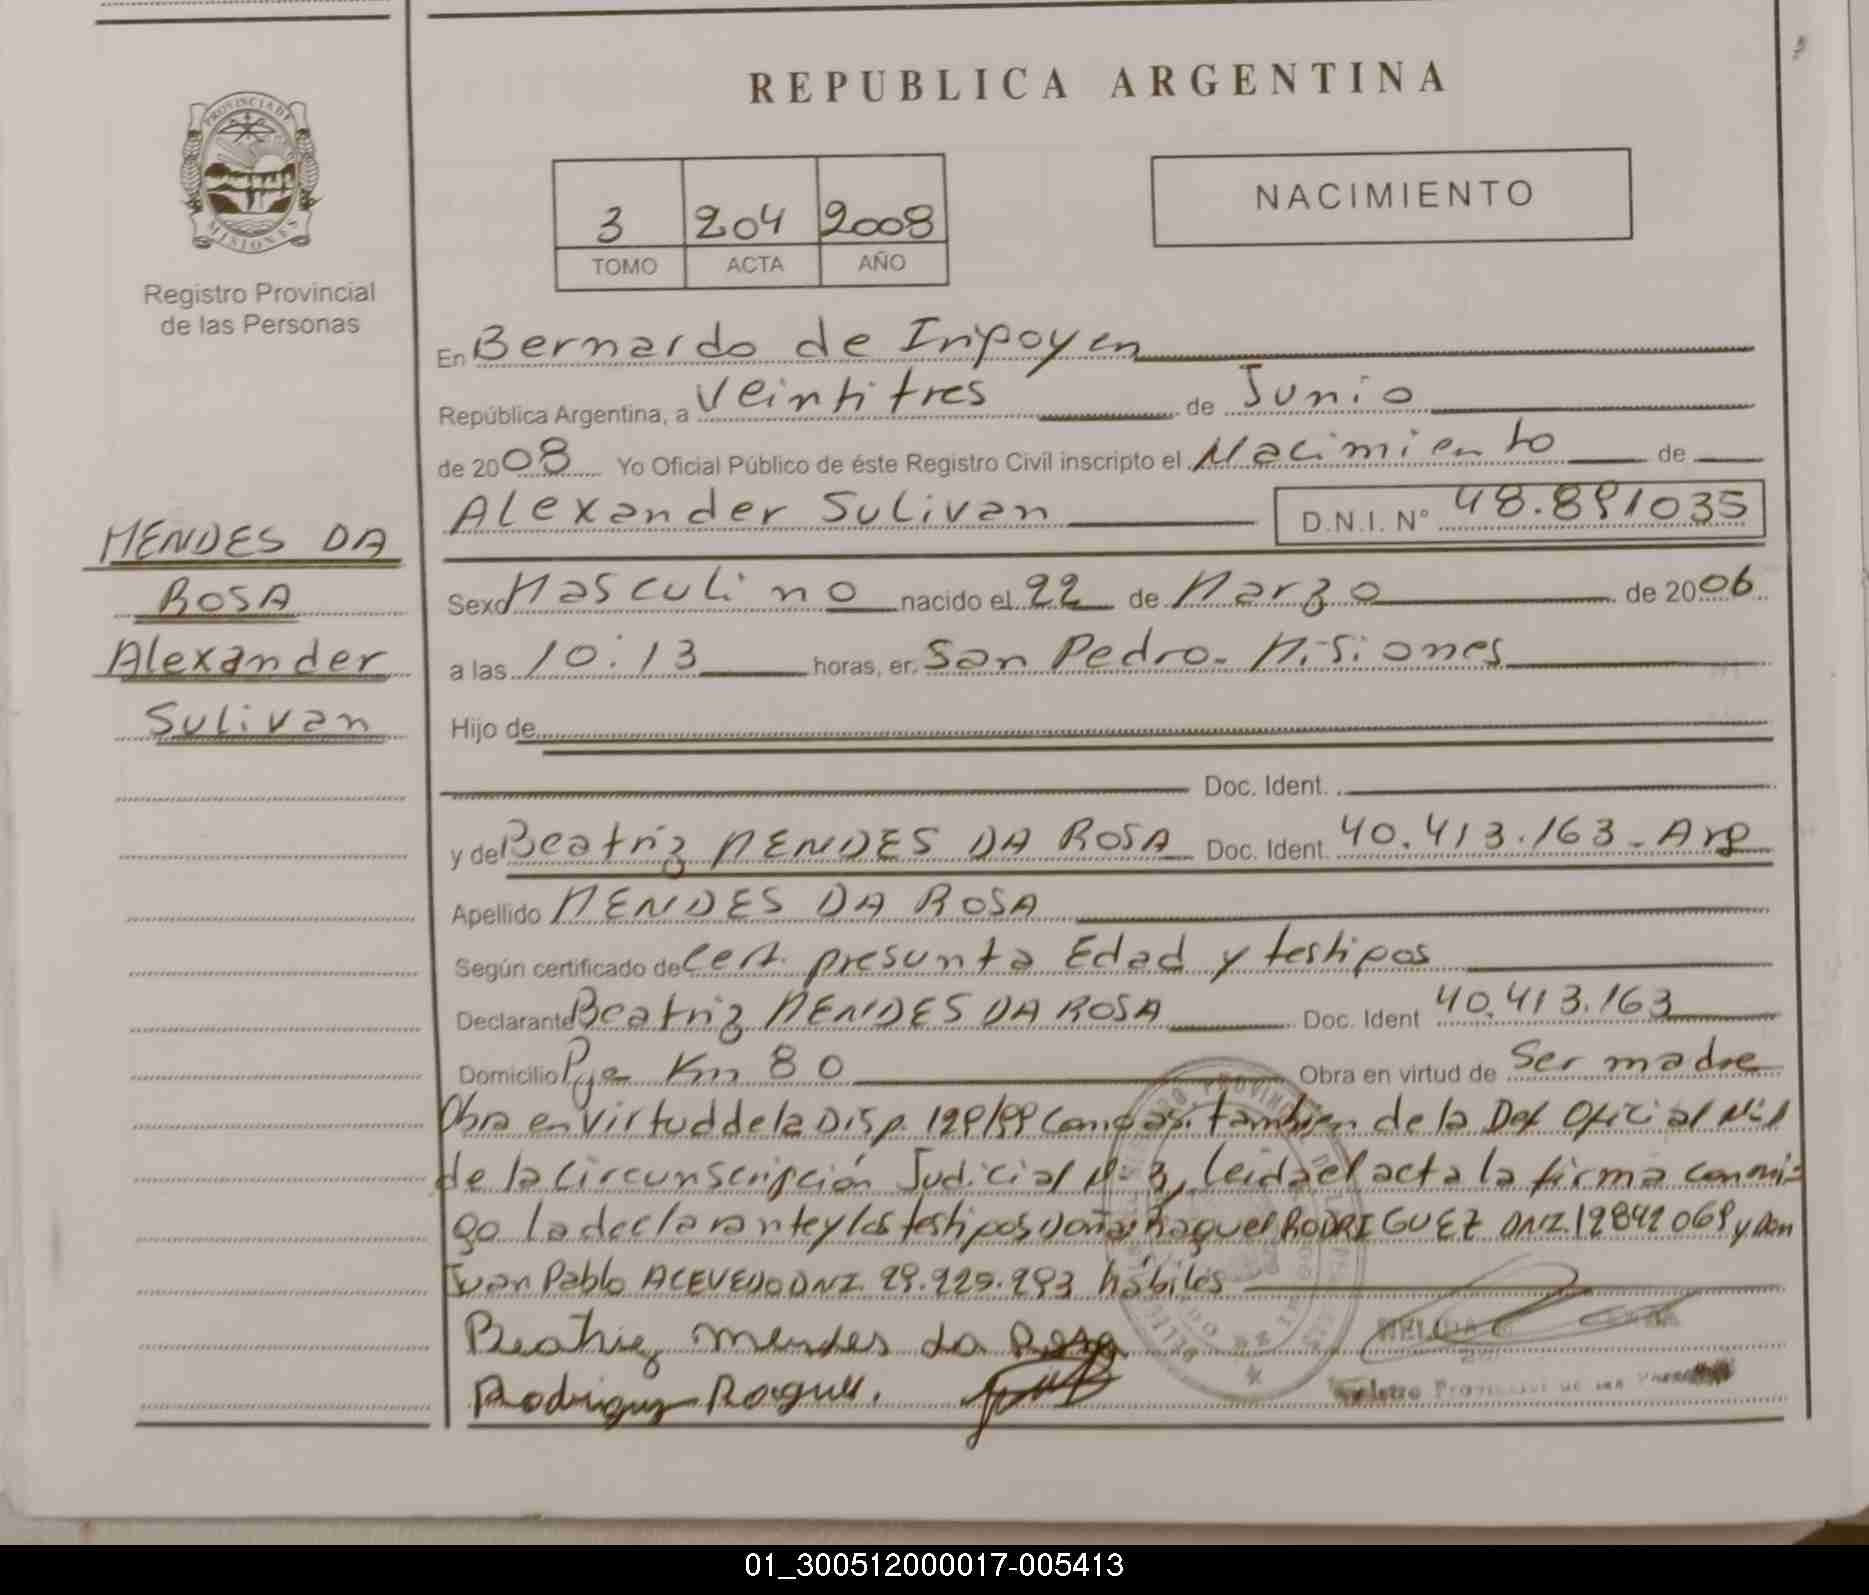 REPUBLICA ARGENTINA
PROVINCIA DE
MISIONES
Registro Provincial
de las Personas
NACIMIENTO
3 204 2008
TOMO ACTA AÑO
En Bernardo de Irigoyen
República Argentina, a Veintitres de Junio
de 2008 Yo Oficial Público de éste Registro Civil inscripto el Nacimiento de
Alexander Sulivan D.N.I. Nº 48.891035
MENDES DA
ROSA
Alexander
Sulivan
Sexo Masculino nacido el 22 de Marzo de 2006
a las 10:13 horas, en San Pedro - Misiones
Hijo de
Doc. Ident.
y de Beatriz MENDES DA ROSA Doc. Ident. 40.413.163 - Arg
Apellido MENDES DA ROSA
Según certificado de Cert. presunta Edad y testigos
Declarante Beatriz MENDES DA ROSA Doc. Ident 40.413.163
Domicilio Pje Km 80 Obra en virtud de Ser madre
Obra en virtud de la Disp. 129/99 como así también de la Def Oficial Nº1
de la Circunscripción Judicial Nº 3, leida el acta la firma conmi-
go la declarante y los testigos Doña Raquel RODRIGUEZ DNI. 12842069 y Don
Juan Pablo ACEVEDO DNI. 29.229.293 hábiles
Beatriz Mendes da Rosa
Rodriguez Raquel.
Registro Provincial de las Personas
01_300512000017-005413